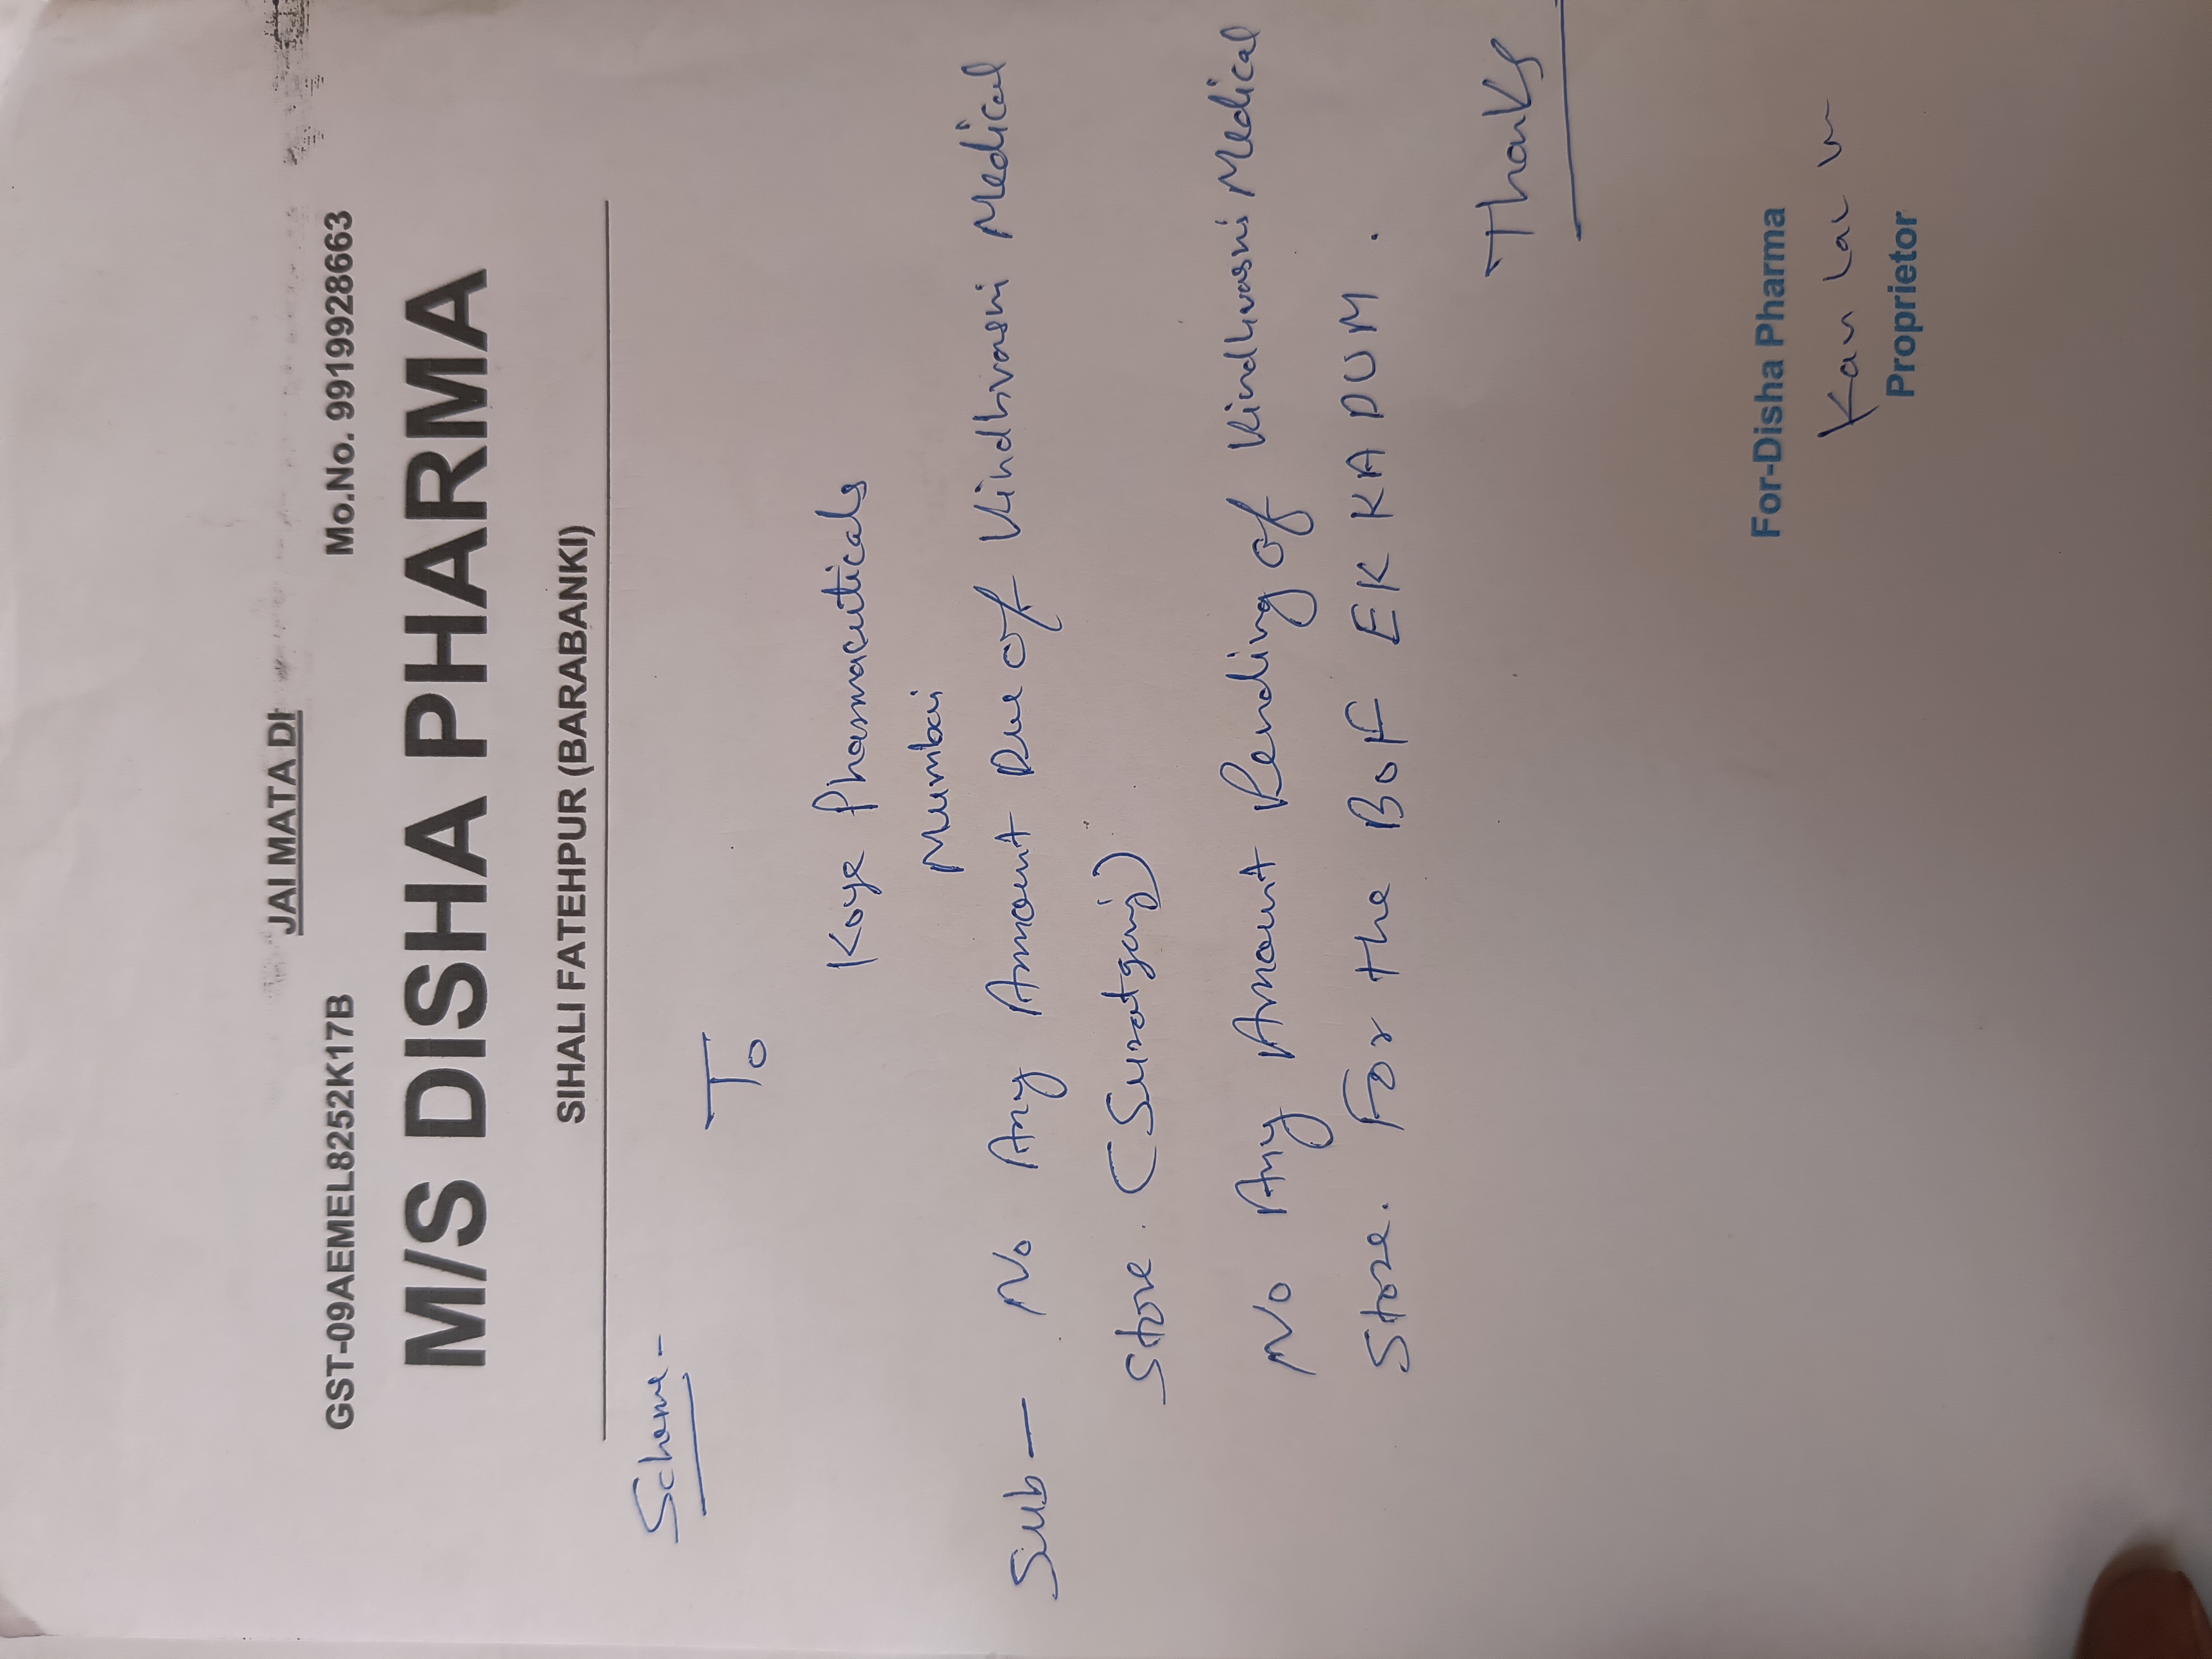 JAI MATA DI
GST-09AEMEL8252K17B Mo.No. 9919928663
M/S DISHA PHARMA
SIHALI FATEHPUR (BARABANKI)
Scheme -
To
Koye Pharmaceuticals
Mumbai
Sub — No Any Amount Due of Vindhvasni Medical
Store. (Suratganj)
No Any Amount Pending of Vindhvasni Medical
Store. For the BOF EK KA DUM.
Thanks
For-Disha Pharma
Proprietor